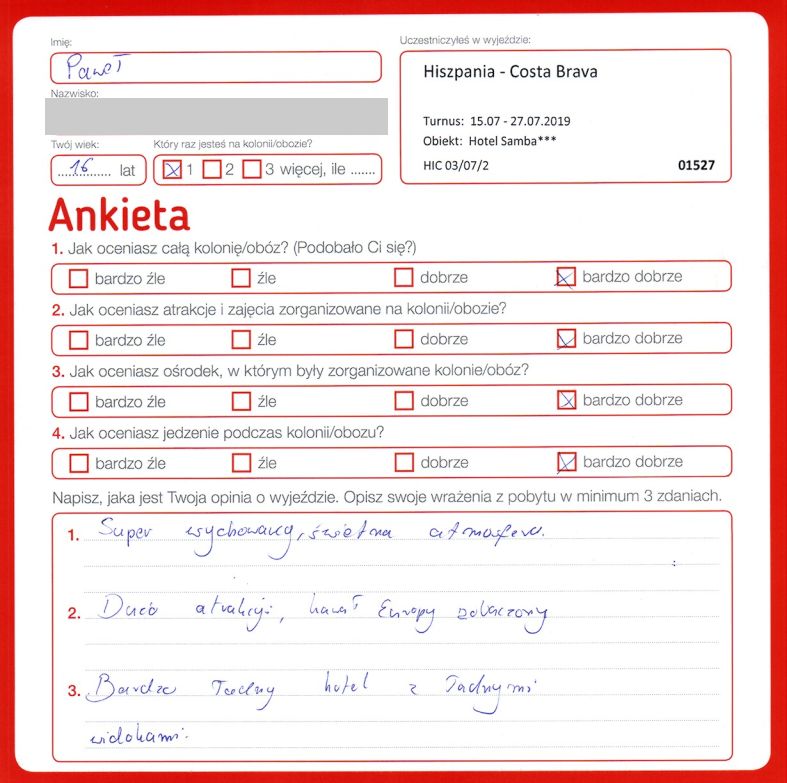 Imię:
Paweł
Nazwisko:
Twój wiek:
16 lat
Który raz jesteś na kolonii/obozie?
1 2 3 więcej, ile .......
Uczestniczyłeś w wyjeździe:
Hiszpania - Costa Brava
Turnus: 15.07 - 27.07.2019
Obiekt: Hotel Samba***
HIC 03/07/2 01527
Ankieta
1. Jak oceniasz całą kolonię/obóz? (Podobało Ci się?)
bardzo źle źle dobrze bardzo dobrze
2. Jak oceniasz atrakcje i zajęcia zorganizowane na kolonii/obozie?
bardzo źle źle dobrze bardzo dobrze
3. Jak oceniasz ośrodek, w którym były zorganizowane kolonie/obóz?
bardzo źle źle dobrze bardzo dobrze
4. Jak oceniasz jedzenie podczas kolonii/obozu?
bardzo źle źle dobrze bardzo dobrze
Napisz, jaka jest Twoja opinia o wyjeździe. Opisz swoje wrażenia z pobytu w minimum 3 zdaniach.
1. Super wychowawcy, świetna atmosfera.
2. Dużo atrakcji, kawał Europy zobaczony
3. Bardzo ładny hotel z ładnymi
widokami.